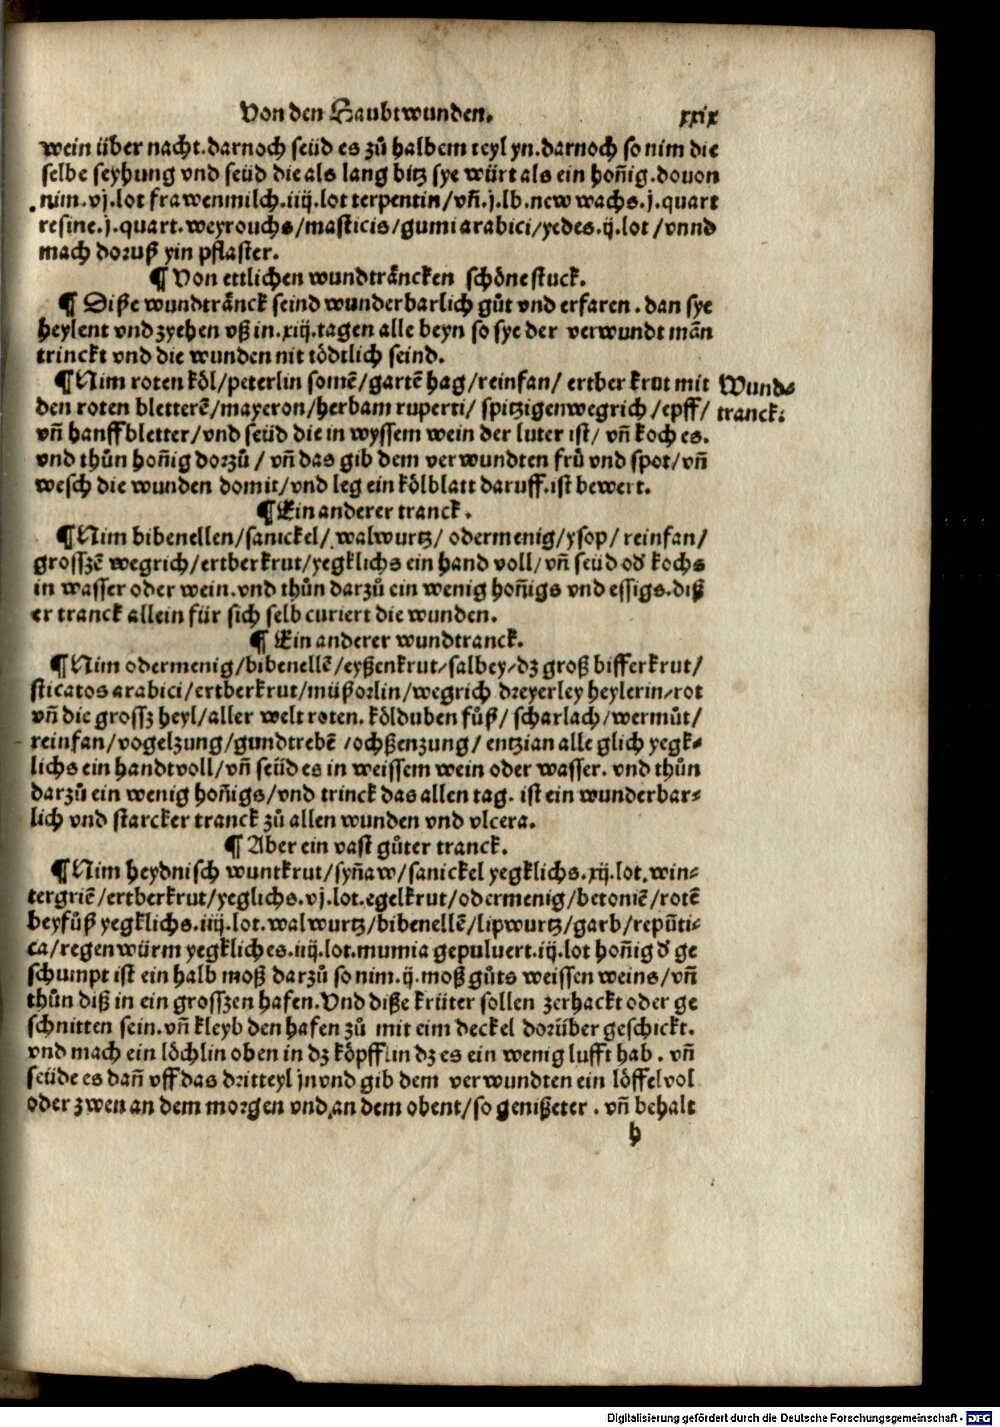 Von den Haubtwunden. xxix
wein über nacht. darnoch seüd es zů halbem teyl yn. darnoch so nim die
selbe seyhung vnd seüd die als lang bitz sye würt als ein hoñig. douon
nim. vj. lot frawenmilch. iiij. lot terpentin/vñ. j. lb. new wachs. j. quart
resine. j. quart. weyrouchs/masticis/gumi arabici/yedes. ij. lot/vnnd
mach doruß yin pflaster.
¶ Von ettlichen wundträncken schöne stuck.
¶ Diße wundtränck seind wunderbarlich gůt vnd erfaren. dan sye
heylent vnd zyehen vß in. xiij. tagen alle beyn so sye der verwundt mãn
trinckt vnd die wunden nit tödtlich seind.
¶ Nim roten köl/peterlin somẽ/gartẽ hag/reinfan/ ertber krut mit
den roten bletterẽ/mayeron/herbam ruperti/ spitzigenwegrich/epff/
vñ hanffbletter/vnd seüd die in wyssem wein der luter ist/ vñ koch es.
vnd thůn hoñig dorzů/ vñ das gib dem verwundten frů vnd spot/vñ
wesch die wunden domit/vnd leg ein kölblatt daruff. ist bewert.
Wund-
tranck.
¶ Ein anderer tranck.
¶ Nim bibenellen/sanickel/walwurtz/ odermenig/ysop/ reinfan/
grosszẽ wegrich/ertberkrut/yegklichs ein hand voll/vñ seüd od̕ kochs
in wasser oder wein. vnd thůn darzů ein wenig hoñigs vnd essigs. diß
er tranck allein für sich selb curiert die wunden.
¶ Ein anderer wundtranck.
¶ Nim odermenig/bibenellẽ/eyßenkrut/salbey/dz groß bifferkrut/
sticatos arabici/ertberkrut/müßorlin/wegrich dreyerley heylerin/rot
vñ die grossz heyl/aller welt roten. kölduben fůß/ scharlach/wermůt/
reinfan/vogelzung/gundtrebẽ/ochßenzung/ entzian alle glich yegk-
lichs ein handtvoll/vñ seüd es in weissem wein oder wasser. vnd thůn
darzů ein wenig hoñigs/vnd trinck das allen tag. ist ein wunderbar-
lich vnd starcker tranck zů allen wunden vnd vlcera.
¶ Aber ein vast gůter tranck.
¶ Nim heydnisch wuntkrut/syñaw/sanickel yegklichs. xij. lot. win-
tergriẽ/ertberkrut/yeglichs. vj. lot. egelkrut/odermenig/betoniẽ/rotẽ
beyfůß yegklichs. iiij. lot. walwurtz/bibenellẽ/lipwurtz/garb/repũti-
ca/regenwürm yegkliches. iiij. lot. mumia gepuluert. iij. lot hoñig d̕ ge
schumpt ist ein halb moß darzů so nim. ij. moß gůts weissen weins/vñ
thůn diß in ein grosszen hafen. Vnd diße krüter sollen zerhackt oder ge
schnitten sein. vñ kleyb den hafen zů mit eim deckel dorüber geschickt.
vnd mach ein löchlin oben in dz köpfflin dz es ein wenig lufft hab. vñ
seüde es dañ vff das dritteyl jn vnd gib dem verwundten ein löffel vol
oder zwen an dem morgen vnd an dem obent/so genißeter. vñ behalt
h
Digitalisierung gefördert durch die Deutsche Forschungsgemeinschaft - DFG